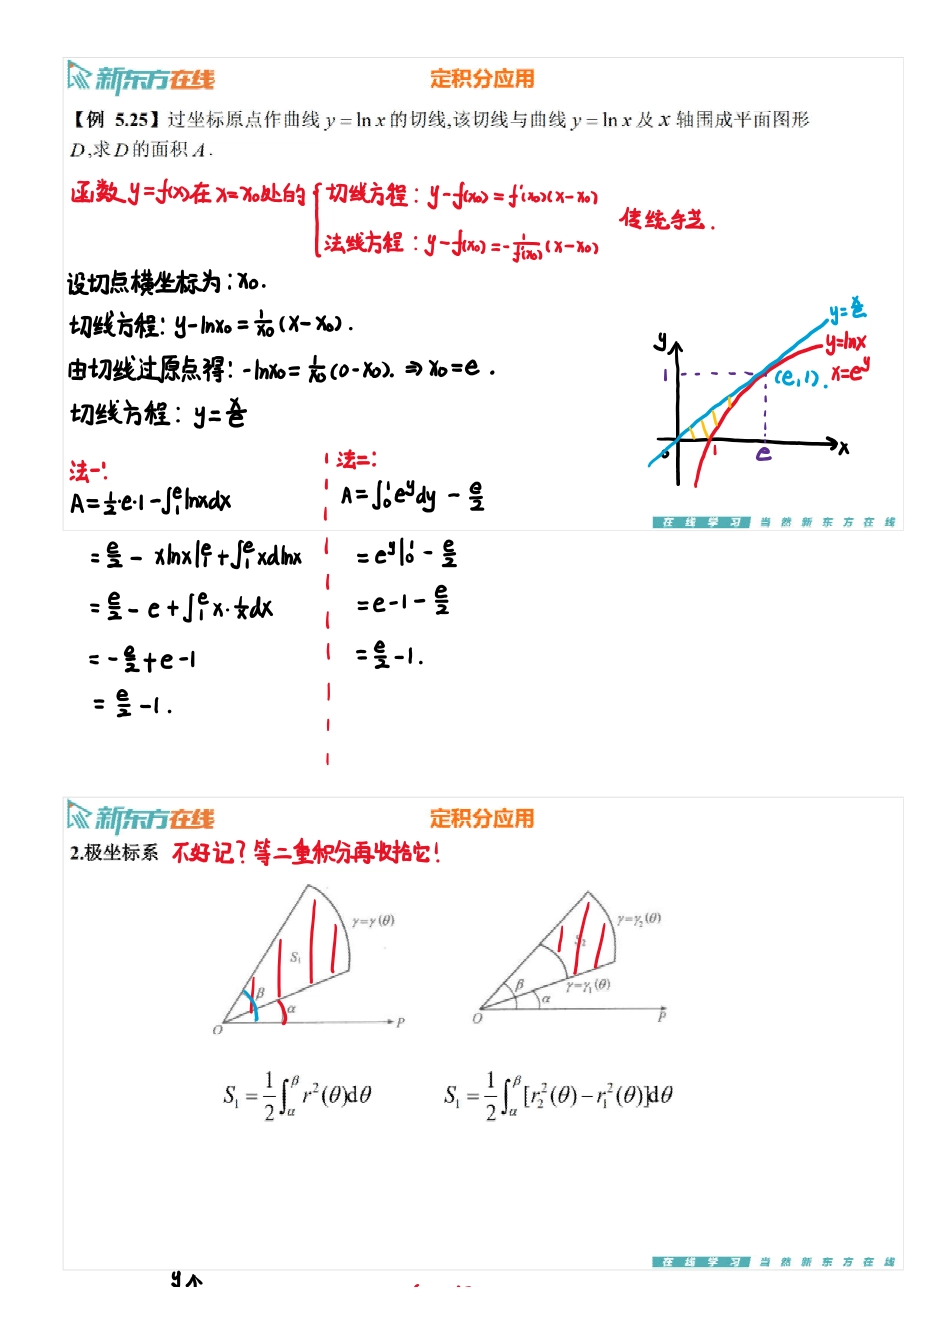 新东方在线
定积分应用
【例 5.25】过坐标原点作曲线 y = ln x 的切线,该切线与曲线 y = ln x 及 x 轴围成平面图形
D,求 D 的面积 A.
函数 y=f(x)在 x=x₀处的 { 切线方程: y-f(x₀)=f'(x₀)(x-x₀)
法线方程: y-f(x₀)=-1/f'(x₀)(x-x₀)
传统手艺.
设切点横坐标为: x₀.
切线方程: y-lnx₀=1/x₀(x-x₀).
由切线过原点得: -lnx₀=1/x₀(0-x₀). ⇒ x₀=e.
切线方程: y=x/e
y
1
0
1
e
x
y=x/e
y=lnx
(e,1).
x=e^y
法一:
A=1/2·e·1-∫₁^e lnxdx
=e/2 - xlnx|₁^e+∫₁^e xdlnx
=e/2 - e+∫₁^e x·1/x dx
=-e/2+e-1
=e/2-1.
法二:
A=∫₀¹e^y dy - e/2
=e^y|₀¹ - e/2
=e-1-e/2
=e/2-1.
在线学习 当然新东方在线
新东方在线
定积分应用
2.极坐标系 不好记?等二重积分再收拾它!
γ=γ(θ)
S₁
β
α
O
P
γ=γ₂(θ)
S₂
γ=γ₁(θ)
β
α
O
P
S₁ = 1/2 ∫_α^β r²(θ)dθ
S₁ = 1/2 ∫_α^β [r₂²(θ) − r₁²(θ)]dθ
在线学习 当然新东方在线
y